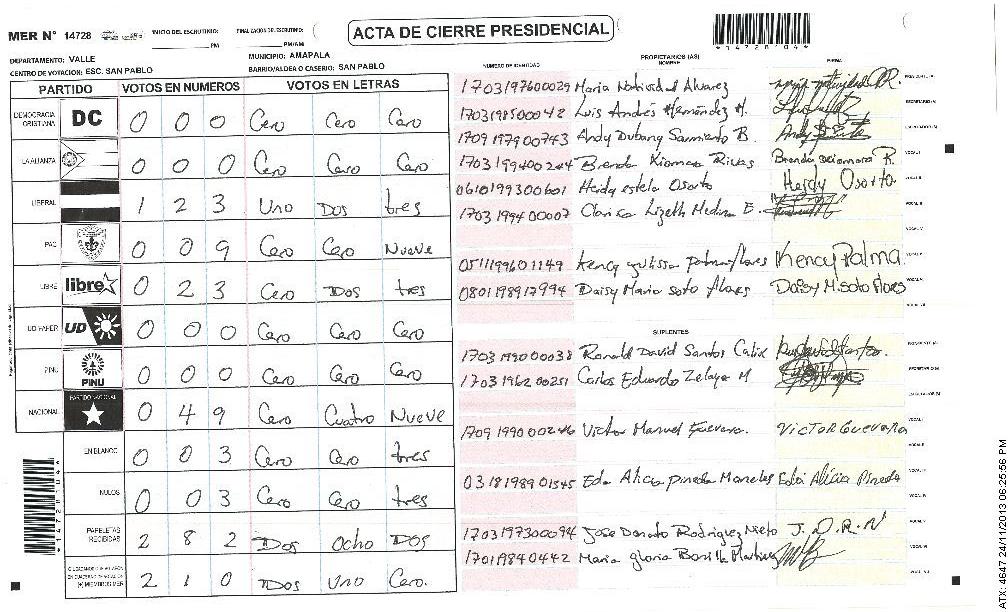 MER N° 14728
INICIO DEL ESCRUTINIO:
PM
FINALIZACION DE ESCRUTINIO:
PM/AM
ACTA DE CIERRE PRESIDENCIAL
*1472804*
DEPARTAMENTO: VALLE
MUNICIPIO: AMAPALA
CENTRO DE VOTACION: ESC. SAN PABLO
BARRIO/ALDEA O CASERIO: SAN PABLO
PARTIDO VOTOS EN NUMEROS VOTOS EN LETRAS
DEMOCRACIA CRISTIANA DC 0 0 0 Cero Cero Cero
LA ALIANZA 0 0 0 Cero Cero Cero
LIBERAL 1 2 3 Uno Dos tres
PAC 0 0 9 Cero Cero Nueve
LIBRE libre 0 2 3 Cero Dos tres
UD FAPER UD 0 0 0 Cero Cero Cero
PINU PINU 0 0 0 Cero Cero Cero
NACIONAL PARTIDO NACIONAL 0 4 9 Cero Cuatro Nueve
EN BLANCO 0 0 3 Cero Cero tres
NULOS 0 0 3 Cero Cero tres
PAPELETAS RECIBIDAS 2 8 2 Dos Ocho Dos
2 1 0 Dos Uno Cero.
NUMERO DE IDENTIDAD PROPIETARIOS (AS) NOMBRE FIRMA
1703197600029 Maria Natividad Alvarez PRESIDENTE/A
1703198500042 Luis Andrés Hernández H. SECRETARIO/A
1709197900743 Andy Dubany Sarmiento B. ESCRUTADOR (A)
1703199400244 Brenda Xiomara Rivas Brenda Xiomara R. VOCAL I
0610199300601 Heidy estela Osorto Heidy Osorto VOCAL II
1703199400007 Clarisa Lizeth Medina E. VOCAL III
VOCAL IV
0511199601149 Kency Yulissa palma flores Kency Palma VOCAL V
0801198917994 Daisy Maria soto flores Daisy M. soto Flores VOCAL VI
SUPLENTES
1703199000038 Ronald David Santos Calix PRESIDENTE (A)
1703196200251 Carlos Eduardo Zelaya M SECRETARIO (A)
ESCRUTADOR (A)
1709199000246 Victor Manuel Guevara. VICTOR Guevara VOCAL I
VOCAL II
0318198901545 Eda Alicia pineda Eda Alicia Pineda VOCAL III
VOCAL IV
1703197300094 Jose Donato Rodriguez Nieto J. D. R. N VOCAL V
170119840442 Maria gloria Bonilla Martinez VOCAL VI
*1472804*
ATX: 4647 24/11/2013 06:25:56 PM